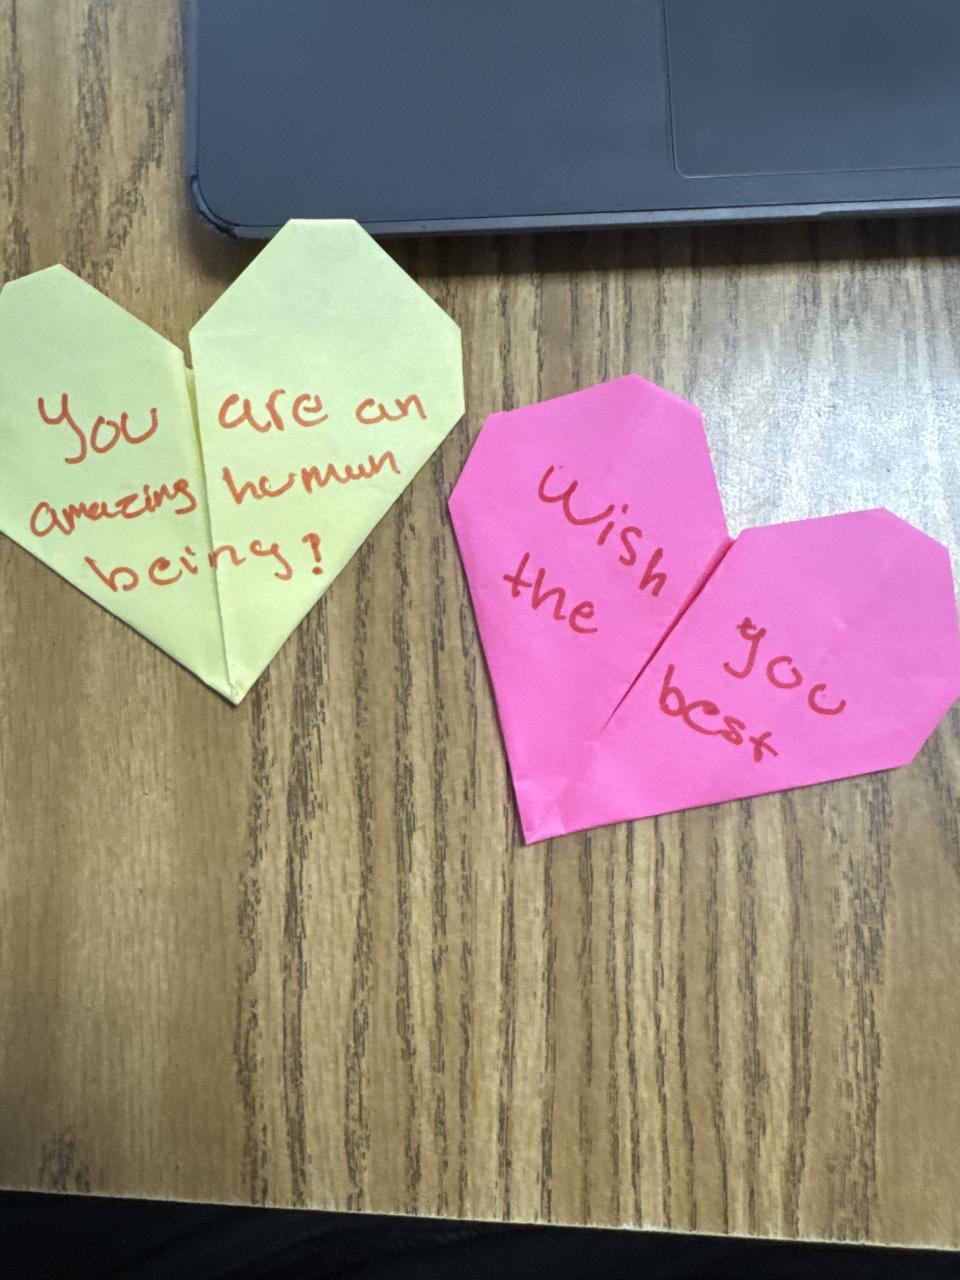 You are an
amazing human
being!
Wish you
the best